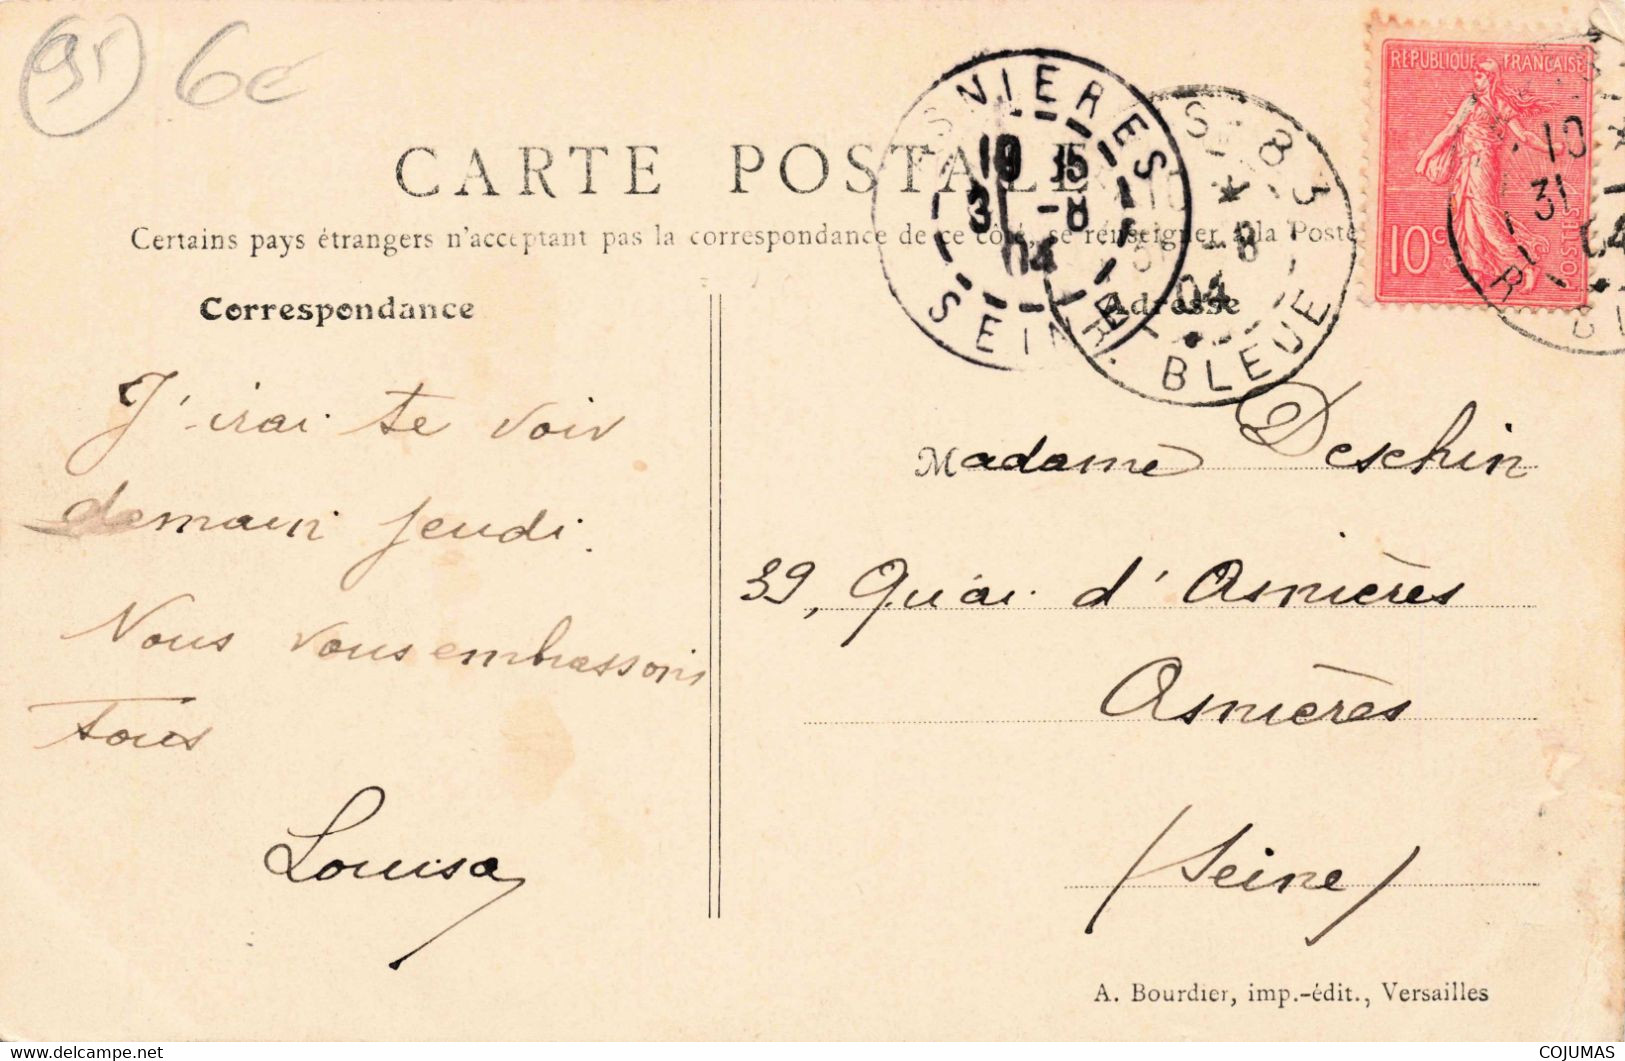 95 6€
CARTE POSTALE
Certains pays étrangers n'acceptant pas la correspondance de ce côté, se renseigner à la Poste
Correspondance
J'irai te voir
demain jeudi.
Nous vous embrassons
tous
Louisa
ASNIERES
10 15
31 -8
04
SEINE
83
10
31 -8
04
R. BLEUE
REPUBLIQUE FRANÇAISE
10c POSTES
10
31
04
R
Adresse
Madame Deschin
39, Quai d'Asnières
Asnières
(Seine)
A. Bourdier, imp.-édit., Versailles
COJUMAS